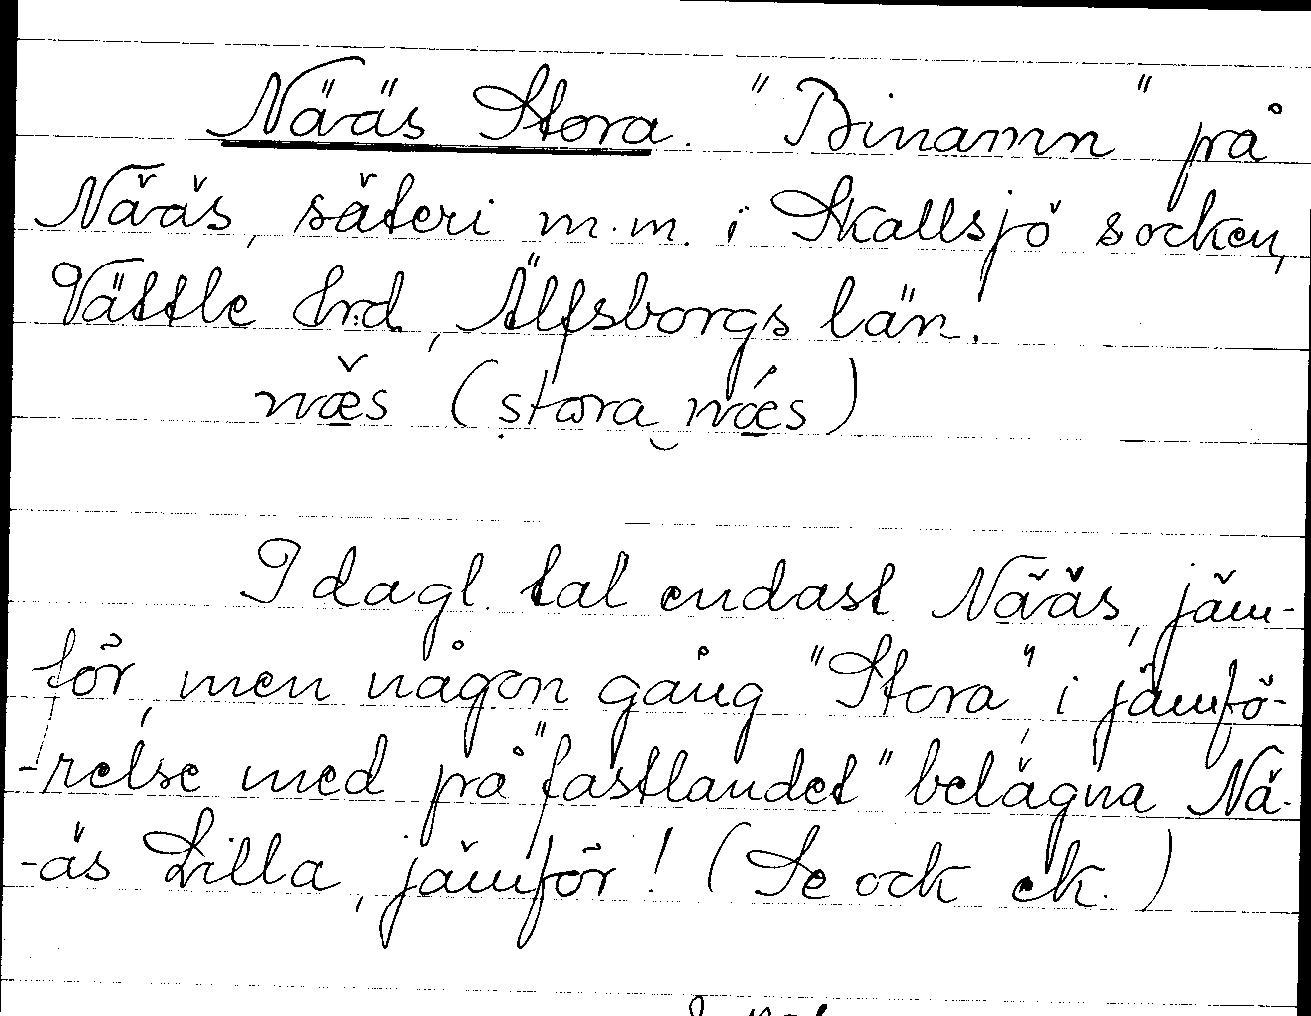 Nääs Stora. "Binamn" på
Nääs, säteri m.m. i Skallsjö socken,
Vättle hrd, Älfsborgs län.
næs (stora næs)
I dagl. tal endast Nääs, jäm-
för, men någon gång "Stora", i jämfö-
-relse med på "fastlandet" belägna Nä-
-äs Lilla, jämför! (Se ock ek.)